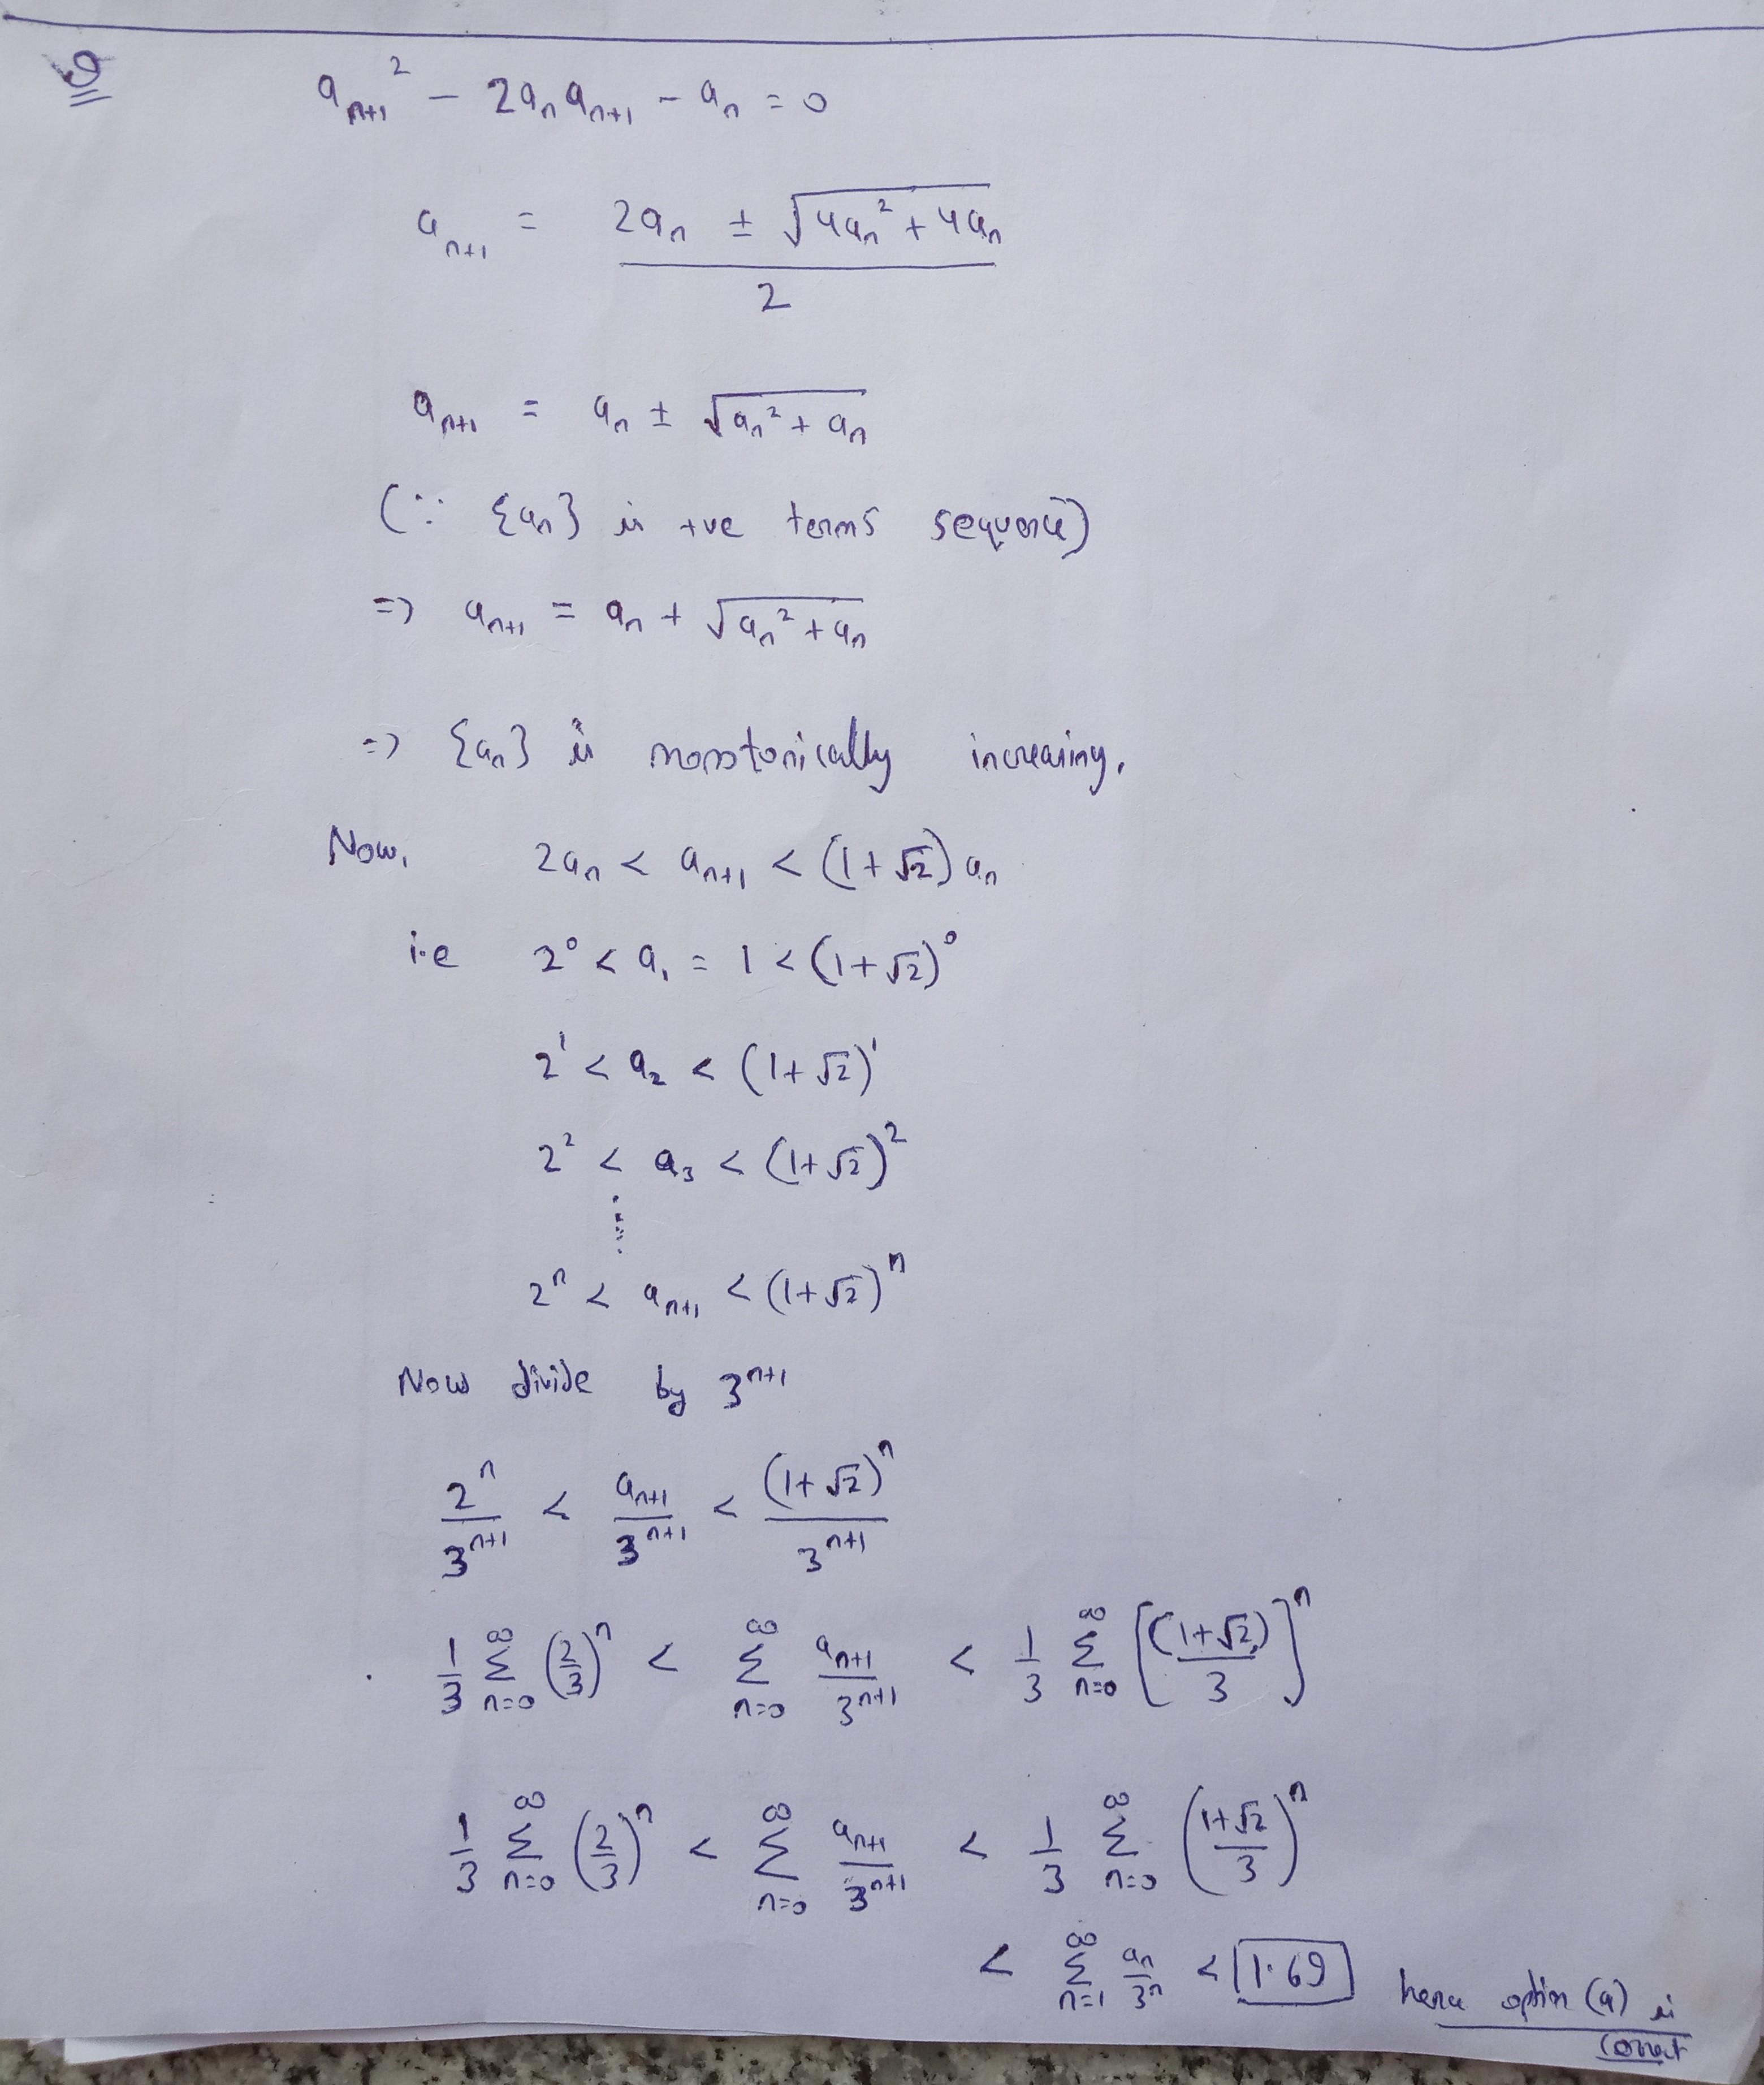 9
a_{n+1}^2 - 2a_n a_{n+1} - a_n = 0
a_{n+1} = \frac{2a_n ± \sqrt{4a_n^2 + 4a_n}}{2}
a_{n+1} = a_n ± \sqrt{a_n^2 + a_n}
(∵ {a_n} is +ve terms sequence)
=> a_{n+1} = a_n + \sqrt{a_n^2 + a_n}
=> {a_n} is monotonically increasing.
Now, 2a_n < a_{n+1} < (1+√2) a_n
i.e 2^0 < a_1 = 1 < (1+√2)^0
2^1 < a_2 < (1+√2)^1
2^2 < a_3 < (1+√2)^2
⋮
2^n < a_{n+1} < (1+√2)^n
Now divide by 3^{n+1}
\frac{2^n}{3^{n+1}} < \frac{a_{n+1}}{3^{n+1}} < \frac{(1+√2)^n}{3^{n+1}}
\frac{1}{3} \sum_{n=0}^{∞} (\frac{2}{3})^n < \sum_{n=0}^{∞} \frac{a_{n+1}}{3^{n+1}} < \frac{1}{3} \sum_{n=0}^{∞} [\frac{(1+√2)}{3}]^n
\frac{1}{3} \sum_{n=0}^{∞} (\frac{2}{3})^n < \sum_{n=0}^{∞} \frac{a_{n+1}}{3^{n+1}} < \frac{1}{3} \sum_{n=0}^{∞} (\frac{1+√2}{3})^n
< \sum_{n=1}^{∞} \frac{a_n}{3^n} < 1.69 hence option (a) is
correct